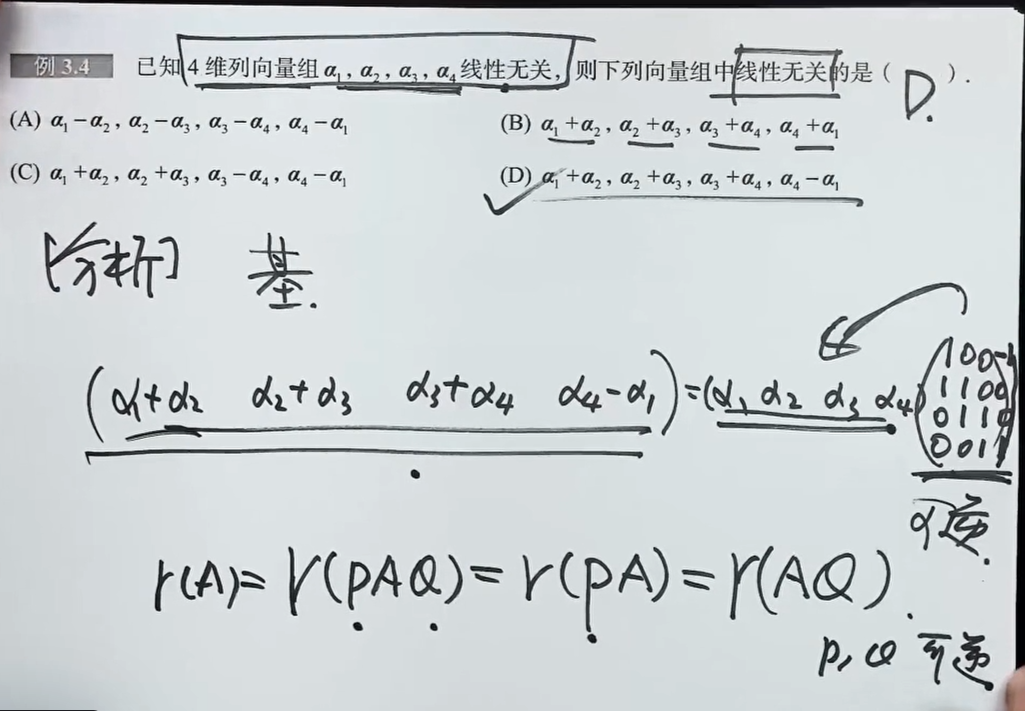 例 3.4 已知 4 维列向量组 α₁, α₂, α₃, α₄ 线性无关, 则下列向量组中线性无关的是 ( D. ).
(A) α₁-α₂, α₂-α₃, α₃-α₄, α₄-α₁ (B) α₁+α₂, α₂+α₃, α₃+α₄, α₄+α₁
(C) α₁+α₂, α₂+α₃, α₃-α₄, α₄-α₁ (D) α₁+α₂, α₂+α₃, α₃+α₄, α₄-α₁
[分析] 基.
1 0 0 -1
(α₁+α₂ α₂+α₃ α₃+α₄ α₄-α₁) = (α₁ α₂ α₃ α₄) 1 1 0 0
0 1 1 0
0 0 1 1
可逆.
r(A) = r(PAQ) = r(PA) = r(AQ).
P, Q 可逆.